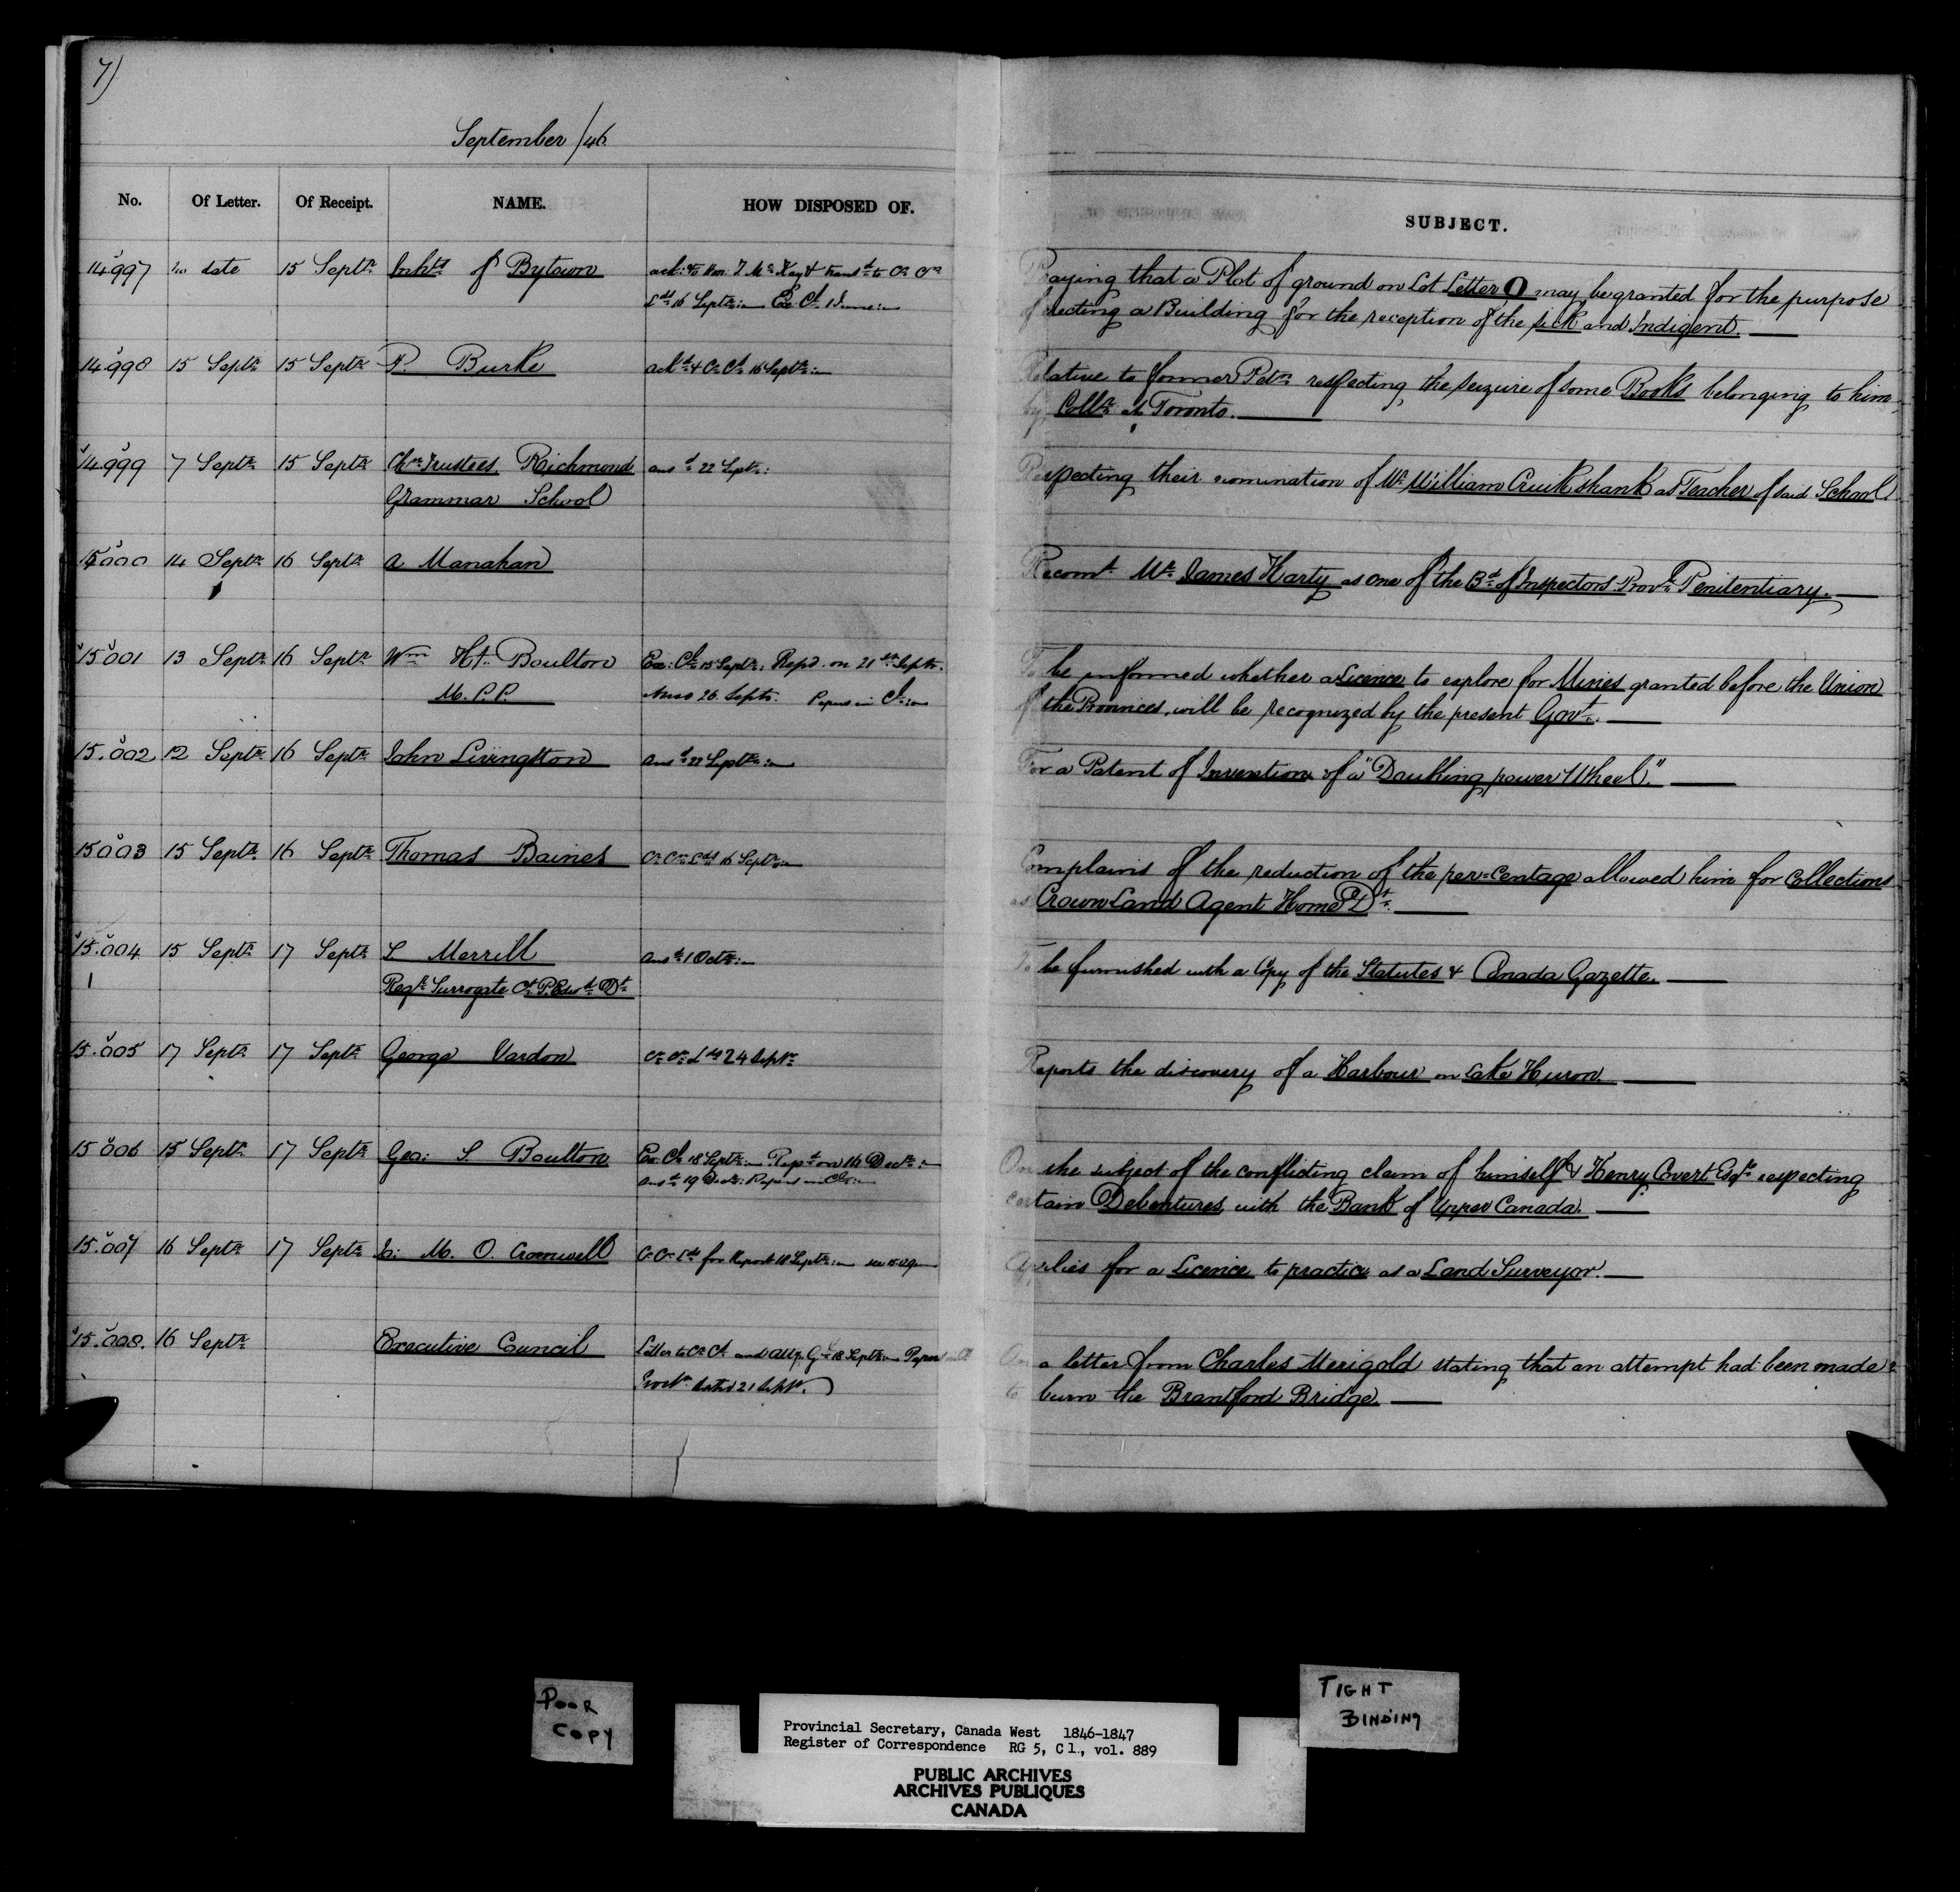 7)
September /46
No. Of Letter. Of Receipt. NAME. HOW DISPOSED OF. SUBJECT.
14997 no date 15 Septr Inhts of Bytown ackd to Hon: T. McKay & transd to Cn Cn
Lds 16 Septr Ex Ct
Praying that a Plot of ground on Lot Letter O may be granted for the purpose
of erecting a Building for the reception of the sick and Indigent.
14998 15 Septr 15 Septr P. Burke ackd & Ex Ct 16 Septr
Relative to former Petn respecting the seizure of some Books belonging to him
by Collr at Toronto.
14.999 7 Septr 15 Septr Chn Trustees Richmond ansd 22 Septr:
Grammar School
Respecting their nomination of Mr William Cruikshank as Teacher of said School
15000 14 Septr 16 Septr A Manahan
Recomt Mr James Harty as one of the Bd of Inspectors Provl Penitentiary.
15001 13 Septr 16 Septr Wm Hy. Boulton Exe: Cl 15 Septr: Repd. on 21st Septr.
M.P.P. Answd 26 Septr. Papers in Cl
To be informed whether a Licence to explore for Mines granted before the Union
of the Provinces, will be recognized by the present Govt.
15.002 12 Septr 16 Septr John Livingston Ansd 22 Septr
For a Patent of Invention of a "Daulling power Wheel."
15003 15 Septr 16 Septr Thomas Baines Cn Cn Lds 16 Septr
Complains of the reduction of the per=centage allowed him for Collections
as Crown Land Agent Home Dt.
15.004 15 Septr 17 Septr S Merrill ansd 1 Octr
Regr Surrogate Ct P. Edwd Dt
To be furnished with a Copy of the Statutes & Canada Gazette.
15.005 17 Septr 17 Septr George Vardon Cn Cn Lds 24 Septr
Reports the discovery of a Harbour on Lake Huron.
15006 15 Septr 17 Septr Geo: S. Boulton Ex Cl 18 Septr Repd on 14 Decr
ansd 19 Decr: Papers in Cl
On the subject of the conflicting claim of himself & Henry Covert Esqre respecting
certain Debentures with the Bank of Upper Canada.
15.007 16 Septr 17 Septr Ja: M. O. Cromwell Cn Cn Lds for Report 18 Septr
Applies for a Licence to practice as a Land Surveyor.
15.008. 16 Septr Executive Council Letter to Cn Ct and Atty. Gl 18 Septr Papers in Cl
dated 21 Septr.
On a letter from Charles Merigold stating that an attempt had been made
to burn the Brantford Bridge.
POOR
COPY
TIGHT
BINDING
Provincial Secretary, Canada West 1846-1847
Register of Correspondence RG 5, C 1., vol. 889
PUBLIC ARCHIVES
ARCHIVES PUBLIQUES
CANADA